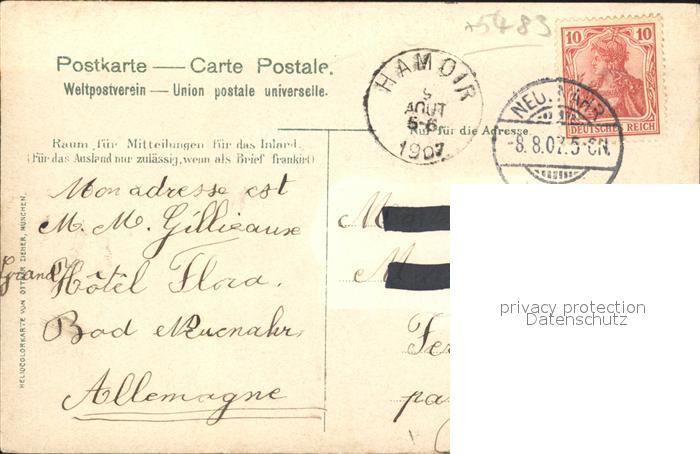 5483
Postkarte — Carte Postale.
Weltpostverein — Union postale universelle.
HAMOIR
9
AOUT
5-6
1907
10 10
DEUTSCHES REICH
NEUENAHR
-8.8.07.5-6N.
Raum für Mitteilungen für das Inland.
(Für das Ausland nur zulässig, wenn als Brief frankiert)
Nur für die Adresse.
Mon adresse est
M. M. Gillieaux
Grand Hôtel Flora.
Bad Neuenahr,
Allemagne
M
M
Fer
pa
HELIOCOLORKARTE VON OTTMAR ZIEHER, MÜNCHEN.
privacy protection
Datenschutz